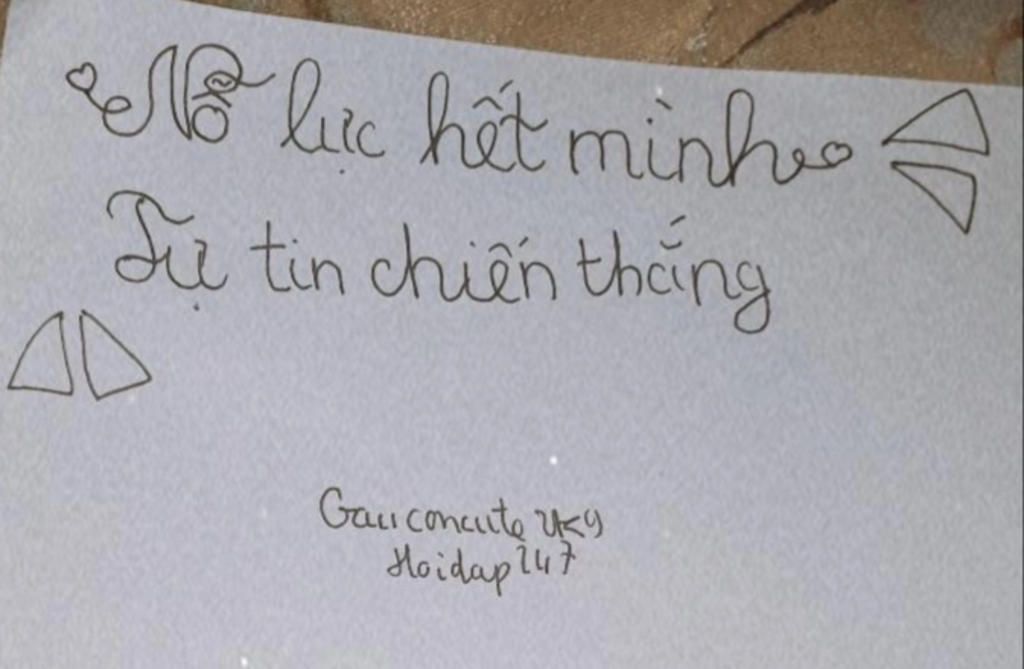 Nỗ lực hết mình
Tự tin chiến thắng
Gauconcute 2k9
Hoidap247